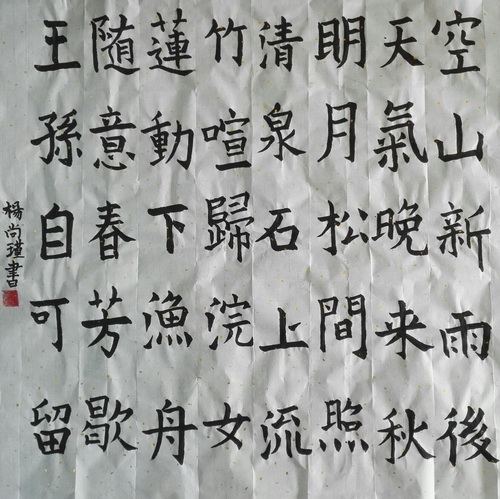 空山新雨後
天氣晚来秋
明月松間照
清泉石上流
竹喧歸浣女
蓮動下漁舟
随意春芳歇
王孫自可留
楊尚瑾書